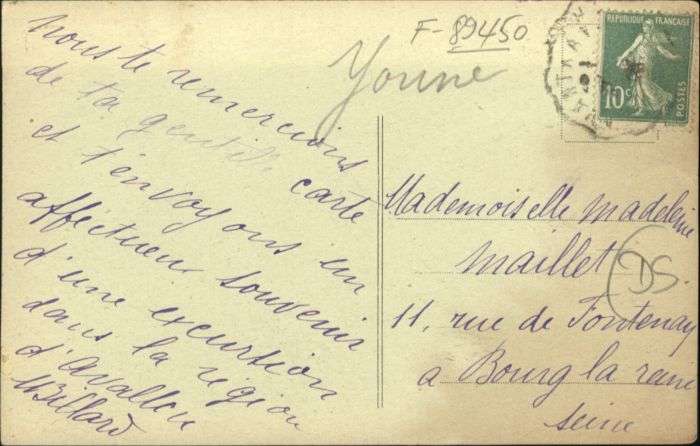 F-89450
Yonne
RÉPUBLIQUE FRANÇAISE
10c
POSTES
nous te remercions
de ta gentille carte
et t'envoyons un
affectueux souvenir
d'une excursion
dans la région
d'Avallon
Mademoiselle Madeleine
Maillet
DS
11, rue de Fontenay
a Bourg la reine
Seine